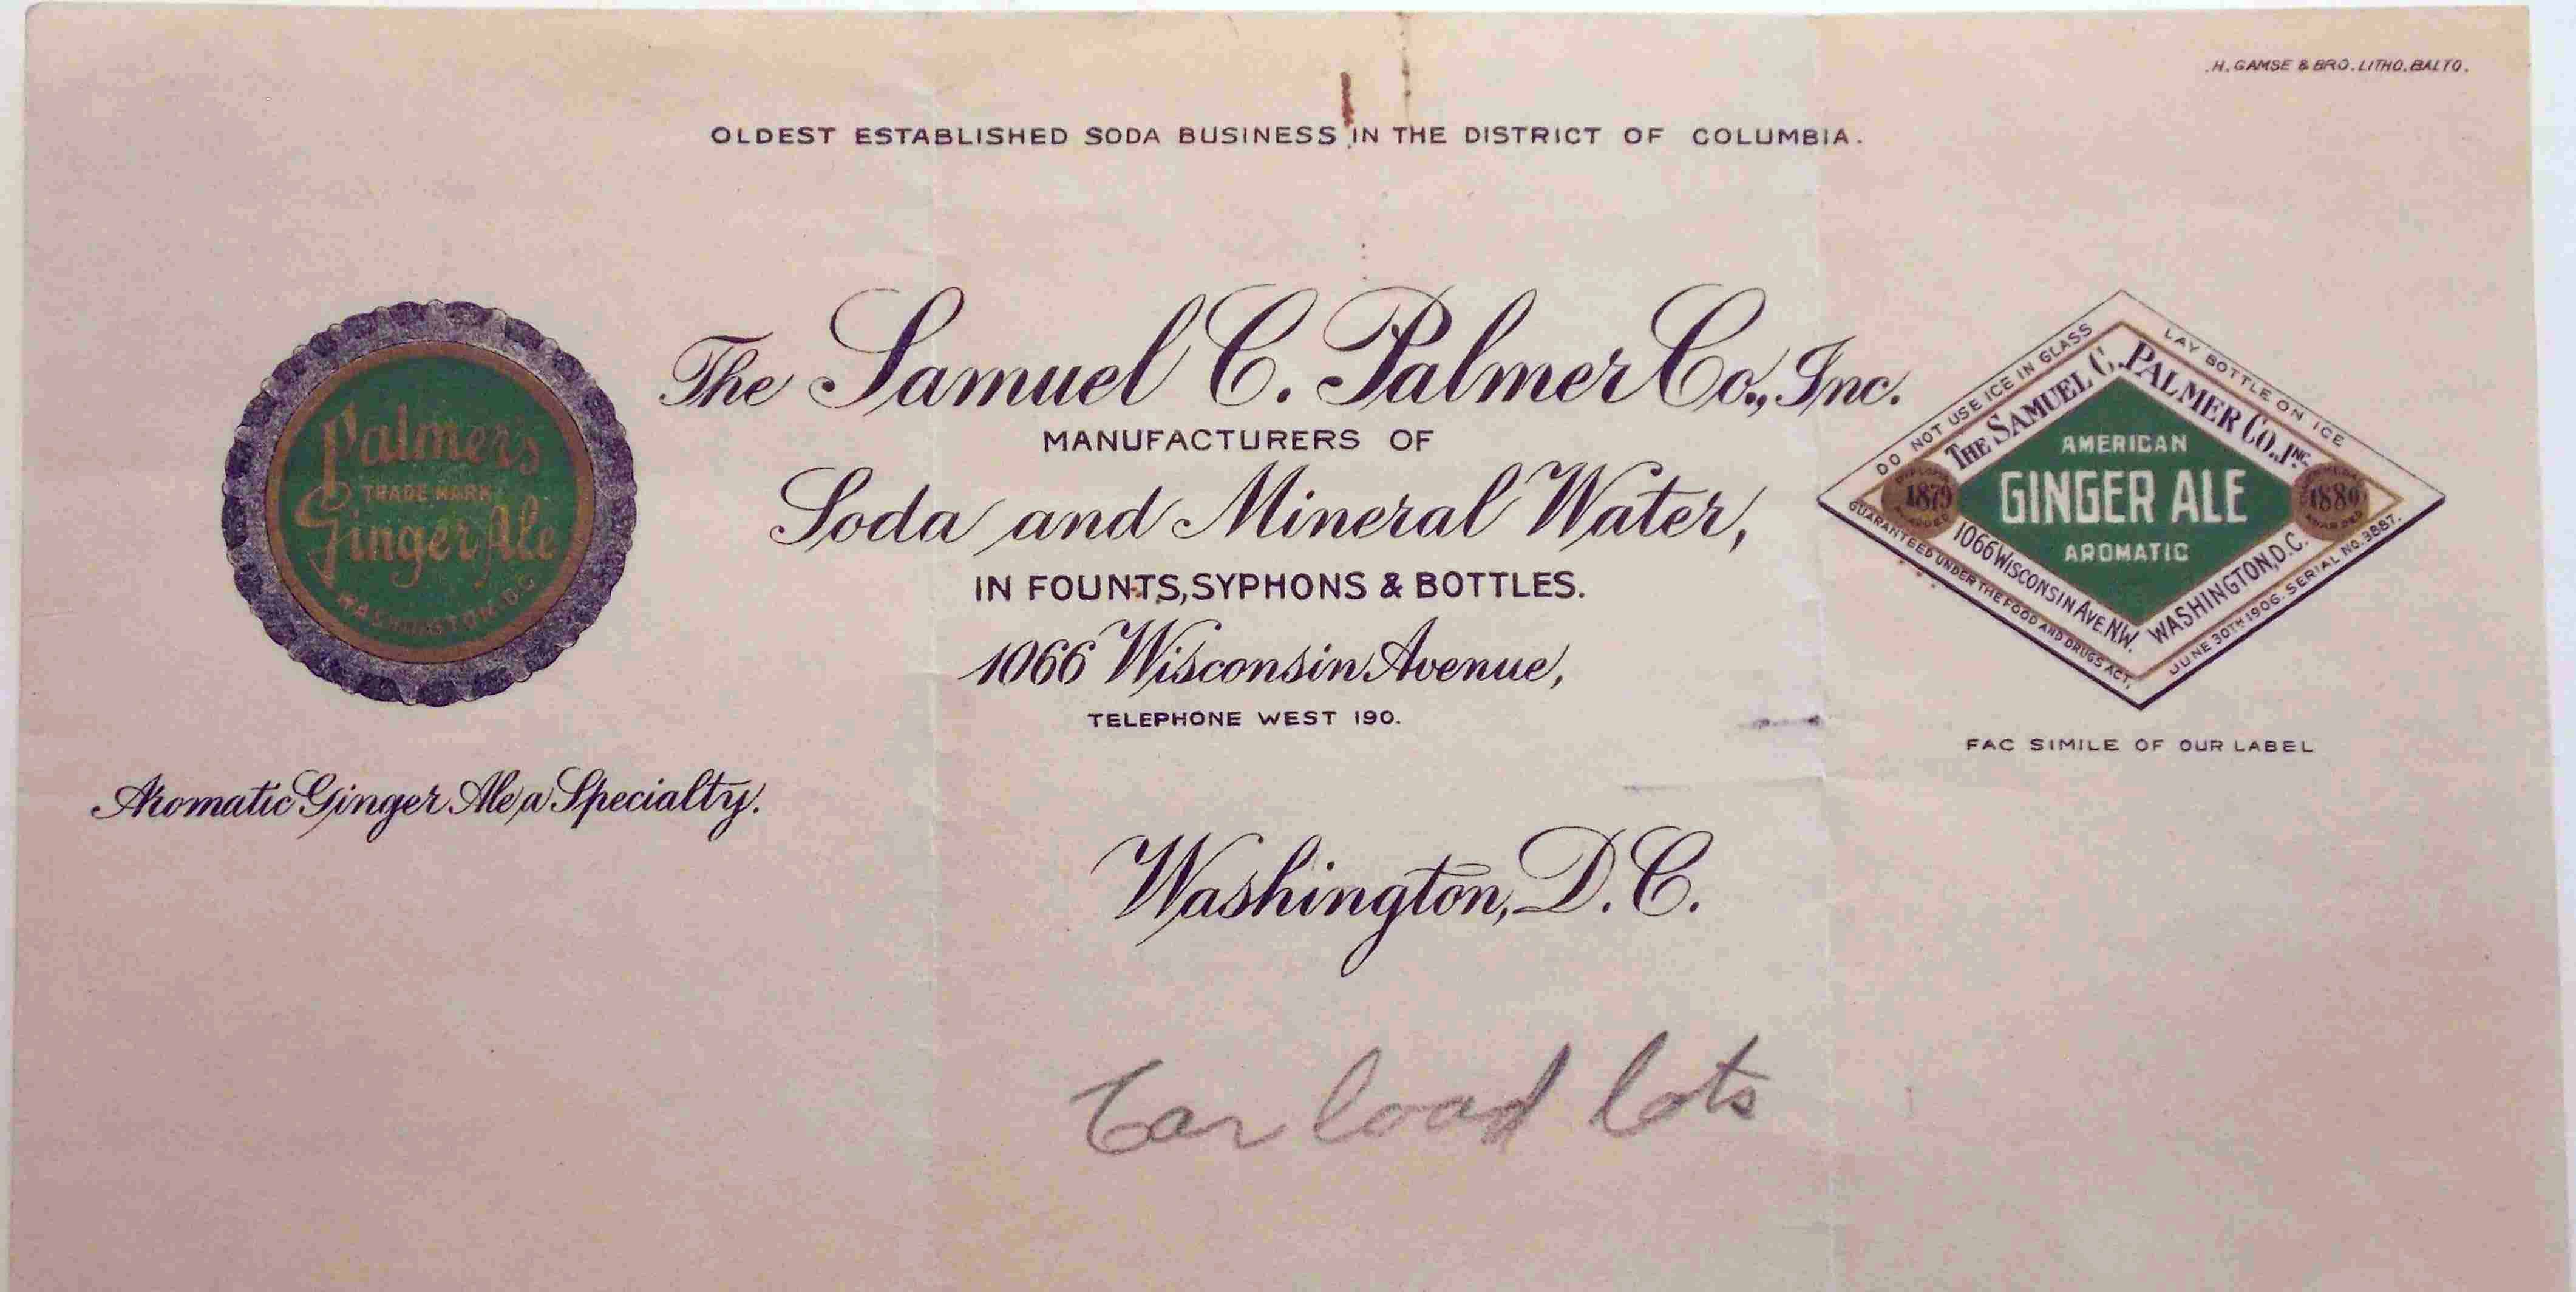 H. GAMSE & BRO. LITHO. BALTO.
OLDEST ESTABLISHED SODA BUSINESS IN THE DISTRICT OF COLUMBIA.
The Samuel C. Palmer Co., Inc.
MANUFACTURERS OF
Soda and Mineral Water,
IN FOUNTS, SYPHONS & BOTTLES.
1066 Wisconsin Avenue,
TELEPHONE WEST 190.
Palmer's
TRADE MARK
Ginger Ale
WASHINGTON, D.C.
Aromatic Ginger Ale a Specialty.
DO NOT USE ICE IN GLASS
LAY BOTTLE ON ICE
THE SAMUEL C. PALMER CO., INC.
AMERICAN
GINGER ALE
AROMATIC
1879
AWARDED
1880
AWARDED
1066 WISCONSIN AVE. N.W. WASHINGTON, D.C.
GUARANTEED UNDER THE FOOD AND DRUGS ACT,
JUNE 30TH 1906. SERIAL NO. 3887.
FAC SIMILE OF OUR LABEL
Washington, D.C.
Car load lots